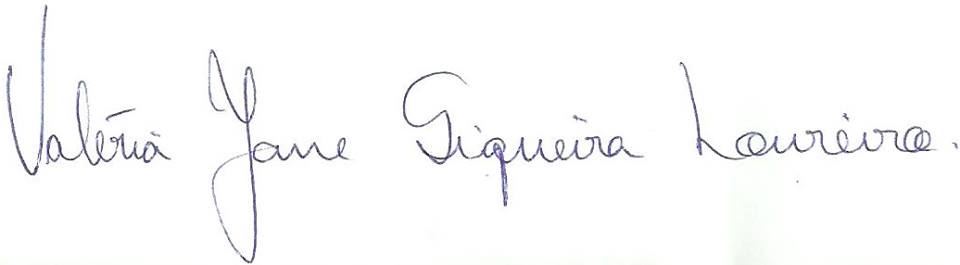 Valéria Jane Siqueira Loureiro.